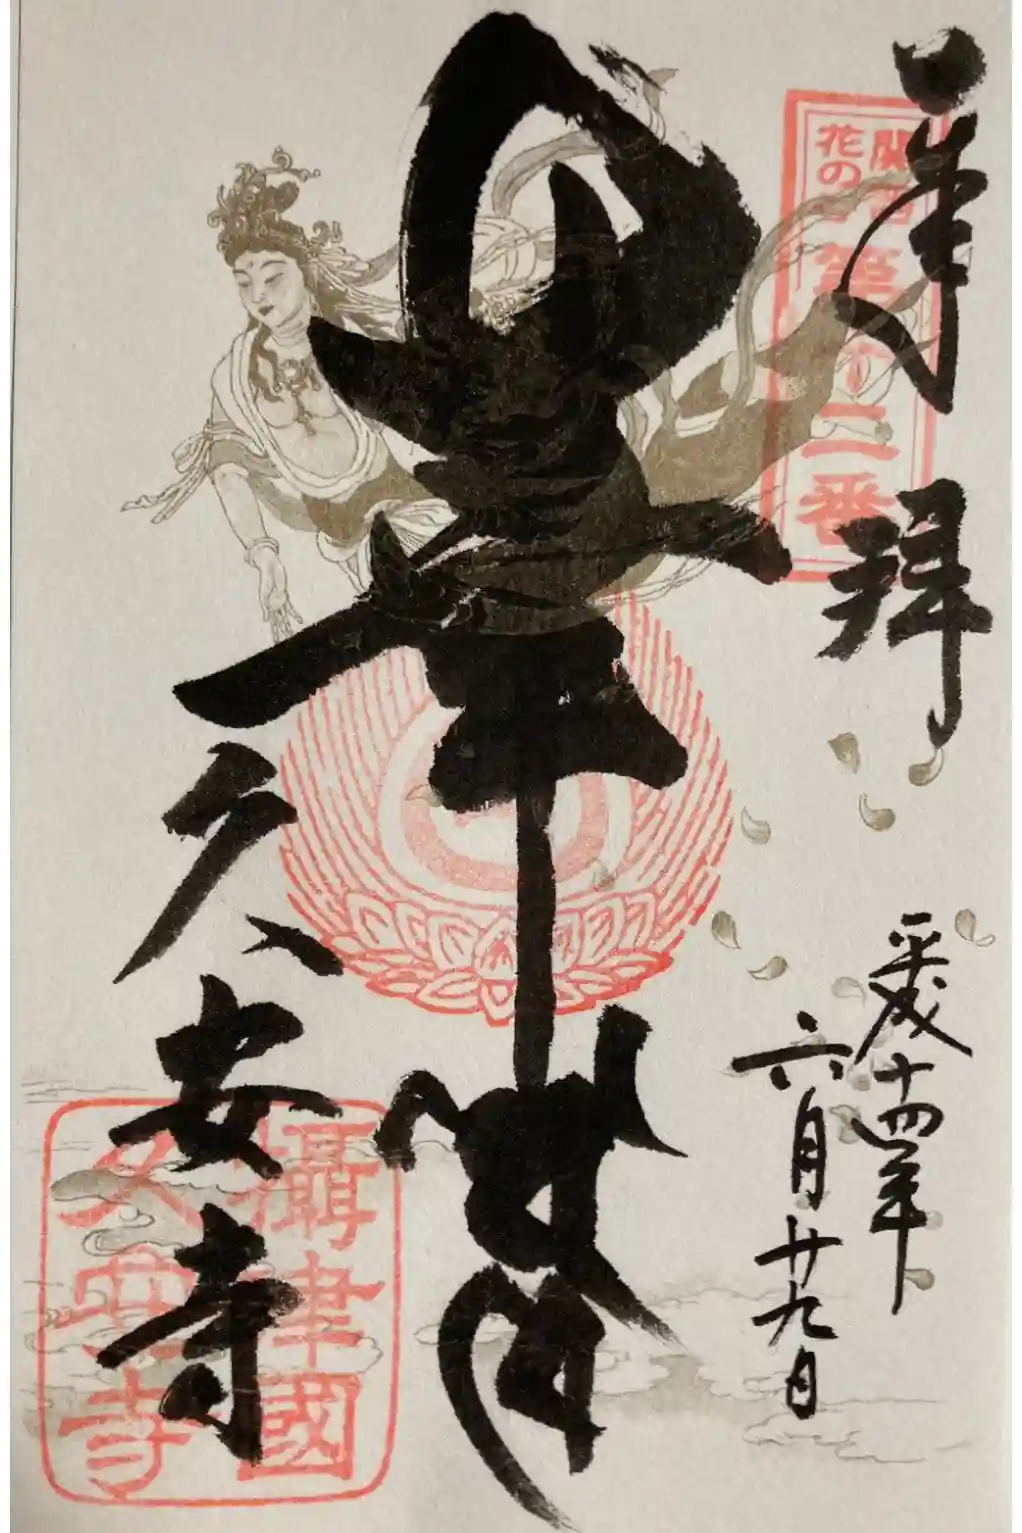 奉拝
関西
花の寺
第十二番
平成十四年
六月廿九日
久安寺
攝津國
久安寺